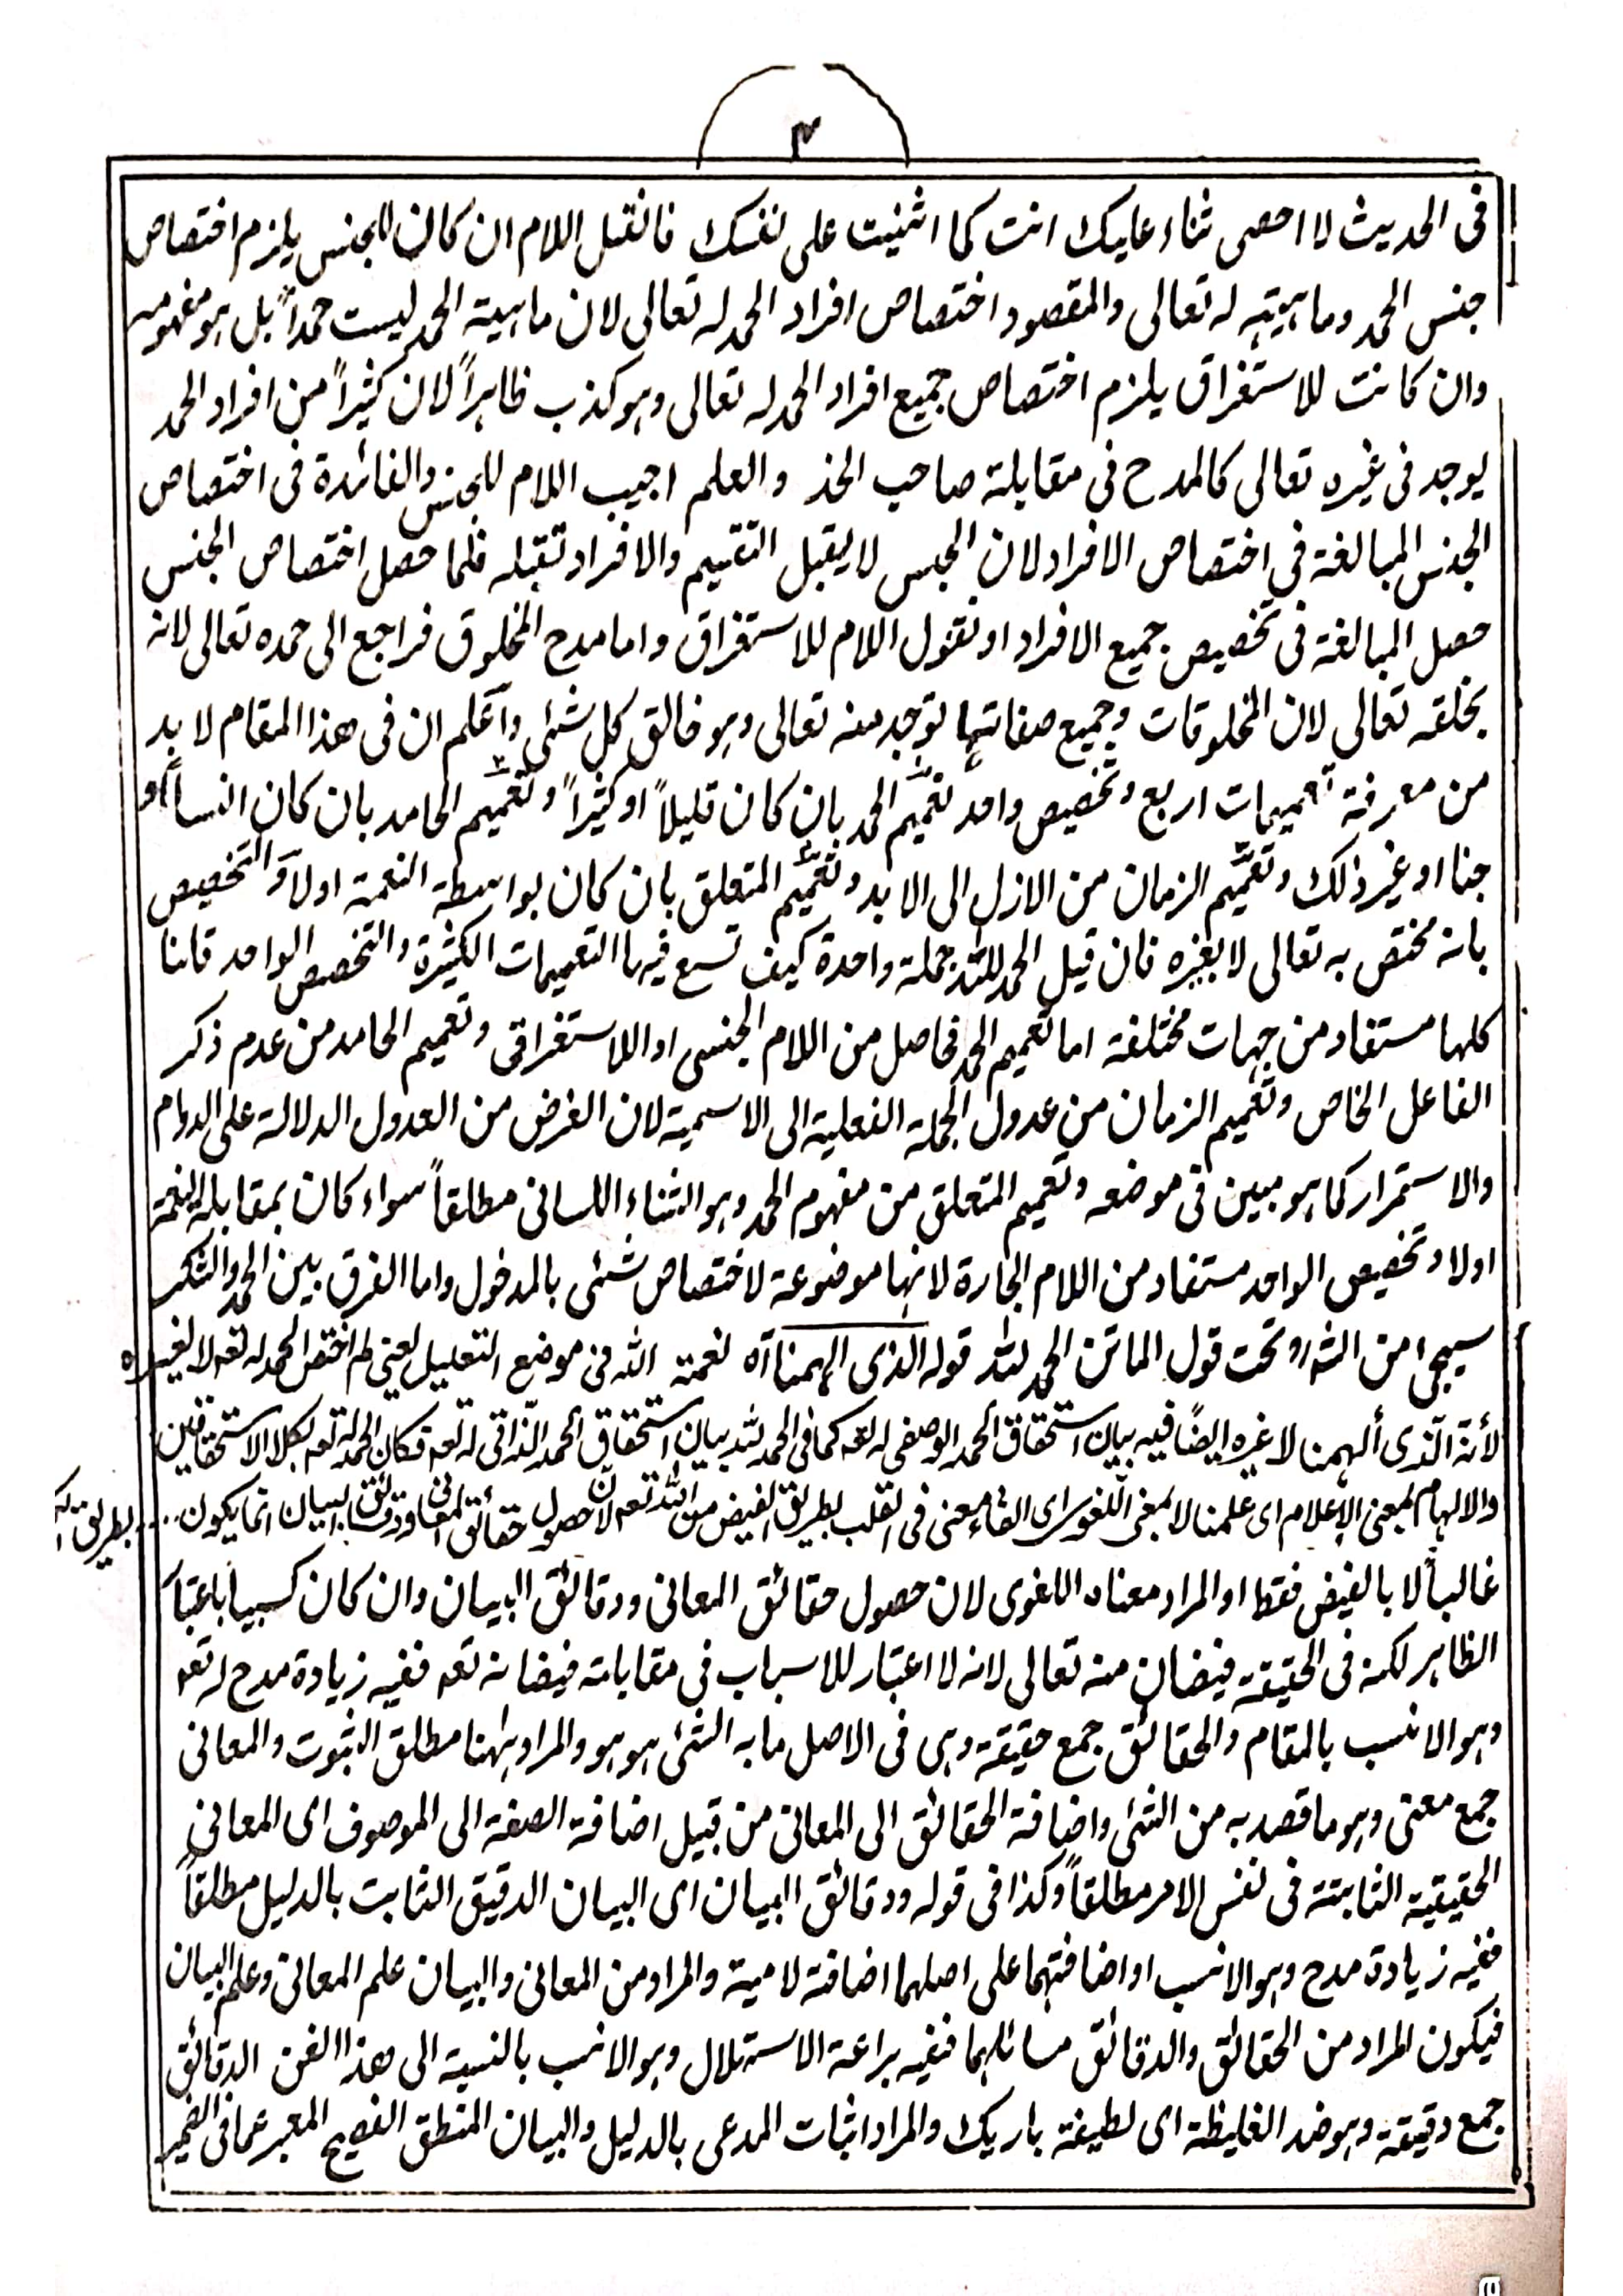 ٣
فى الحديث لا احصى ثناء عليك انت كما اثنيت على نفسك فانقيل اللام ان كان للجنس يلزم اختصاص
جنس الحمد وماهيته له تعالى والمقصود اختصاص افراد الحمد له تعالى لان ماهية الحمد ليست حمداً بل هو مفهومه
وان كانت للاستغراق يلزم اختصاص جميع افراد الحمد له تعالى وهو كذب ظاهراً لان كثيراً من افراد الحمد
يوجد فى غيره تعالى كالمدح فى مقابلة صاحب الخد والعلم اجيب اللام للجنس والفائدة فى اختصاص
الجنس المبالغة فى اختصاص الافراد لان الجنس لا يقبل التقسيم والافراد تقبله فلما حصل اختصاص الجنس
حصل المبالغة فى تخصيص جميع الافراد او نقول اللام للاستغراق واما مدح المخلوق فراجع الى حمده تعالى لانه
بخلقه تعالى لان المخلوقات وجميع صفاتها توجد منه تعالى وهو خالق كل شئى واعلم ان فى هذا المقام لا بد
من معرفة تعميمات اربع وتخصيص واحد تعميم الحمد بان كان قليلاً او كثيراً وتعميم الحامد بان كان انساً او
جنا او غير ذلك وتعميم الزمان من الازل الى الابد وتعميم المتعلق بان كان بواسطة النعمة اولا والتخصيص
بانه مختص به تعالى لا بغيره فان قيل الحمد لله جملة واحدة كيف تسع فيها التعميمات الكثيرة والتخصيص الواحد قلنا
كلها مستفاد من جهات مختلفة اما تعميم الحمد فحاصل من اللام الجنسى او اللاستغراقى وتعميم الحامد من عدم ذكر
الفاعل الخاص وتعميم الزمان من عدول الجملة الفعلية الى الاسمية لان الغرض من العدول الدلالة على الدوام
والاستمرار كما هو مبين فى موضعه وتعميم المتعلق من مفهوم الحمد وهو الثناء اللسانى مطلقاً سواء كان بمقابلة النعمة
اولا وتخصيص الواحد مستفاد من اللام الجارة لانها موضوعة لاختصاص شئى بالمدخول واما الفرق بين الحمد والشكر
سيجىء من الشارو تحت قول الماتن الحمد لله قوله الذى الهمنا آه نعمة الله فى موضع التعليل يعنى لم اختص الحمد له تعه لا لغيره
لأنه الّذى ألهمنا لا غيره ايضًا فيه بيان استحقاق الحمد الوصفى له تعه كما فى الحمد لله بيان استحقاق الحمد الذّاتى له تعه فكان الحمد له تعه بكلا الاستحقاقين
والالهام بمعنى الإعلام اى علمنا لا بمعنى اللغوى اى القاء معنى فى القلب بطريق الفيض من الله تعه لان حصول حقائق المعانى ودقائق البيان انما يكون .... بطريق
غالباً لا بالفيض فقط او المراد معناه اللغوى لان حصول حقائق المعانى ودقائق البيان وان كان كسبياً باعتبار
الظاهر لكنه فى الحقيقة فيضان منه تعالى لانه لا اعتبار للاسباب فى مقابلة فيضانه تعه ففيه زيادة مدح له تعه
وهو الانسب بالمقام والحقائق جمع حقيقة وهى فى الاصل ما به الشئى هو هو والمراد ههنا مطلق الثبوت والمعانى
جمع معنى وهو ما قصد به من الشئى واضافة الحقائق الى المعانى من قبيل اضافة الصفة الى الموصوف اى المعانى
الحقيقية الثابتة فى نفس الامر مطلقاً وكذا فى قوله ودقائق البيان اى البيان الدقيق الثابت بالدليل مطلقاً
ففيه زيادة مدح وهو الانسب او اضافتهما على اصلهما اضافة لامية والمراد من المعانى والبيان علم المعانى وعلم البيان
فيكون المراد من الحقائق والدقائق مسائلهما ففيه براعة الاستهلال وهو الانسب بالنسبة الى هذا الفن الدقائق
جمع دقيقة وهو ضد الغليظة اى لطيفة باريك والمراد اثبات المدعى بالدليل والبيان المنطق الفصيح المعبر عما فى الضمير